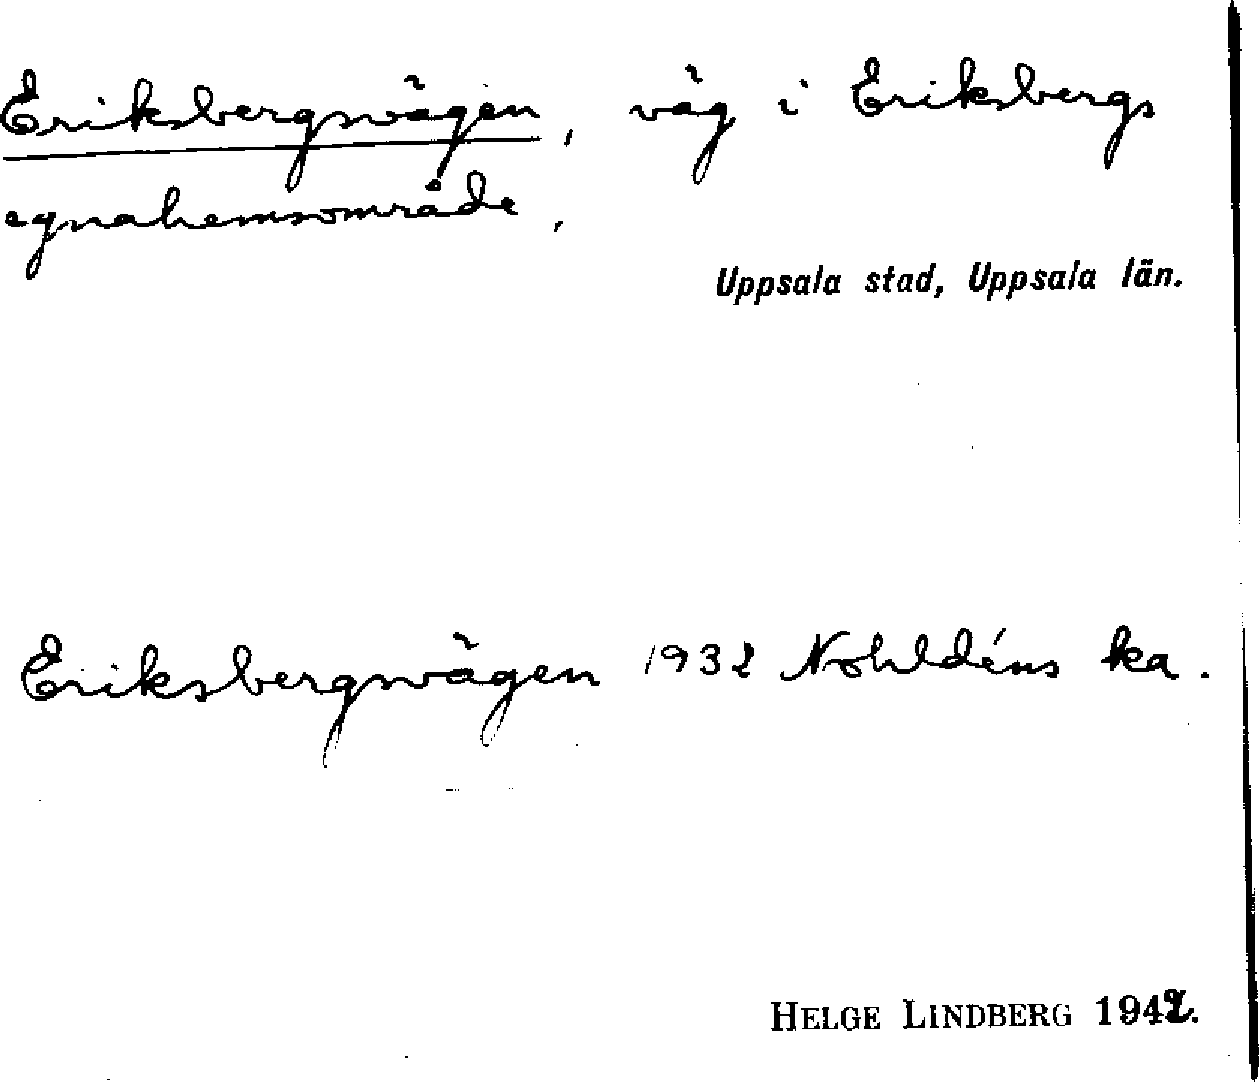 Eriksbergsvägen, väg i Eriksbergs
egnahemsområde,
Uppsala stad, Uppsala län.
Eriksbergsvägen 1932 Nohldéns ka.
HELGE LINDBERG 1942.